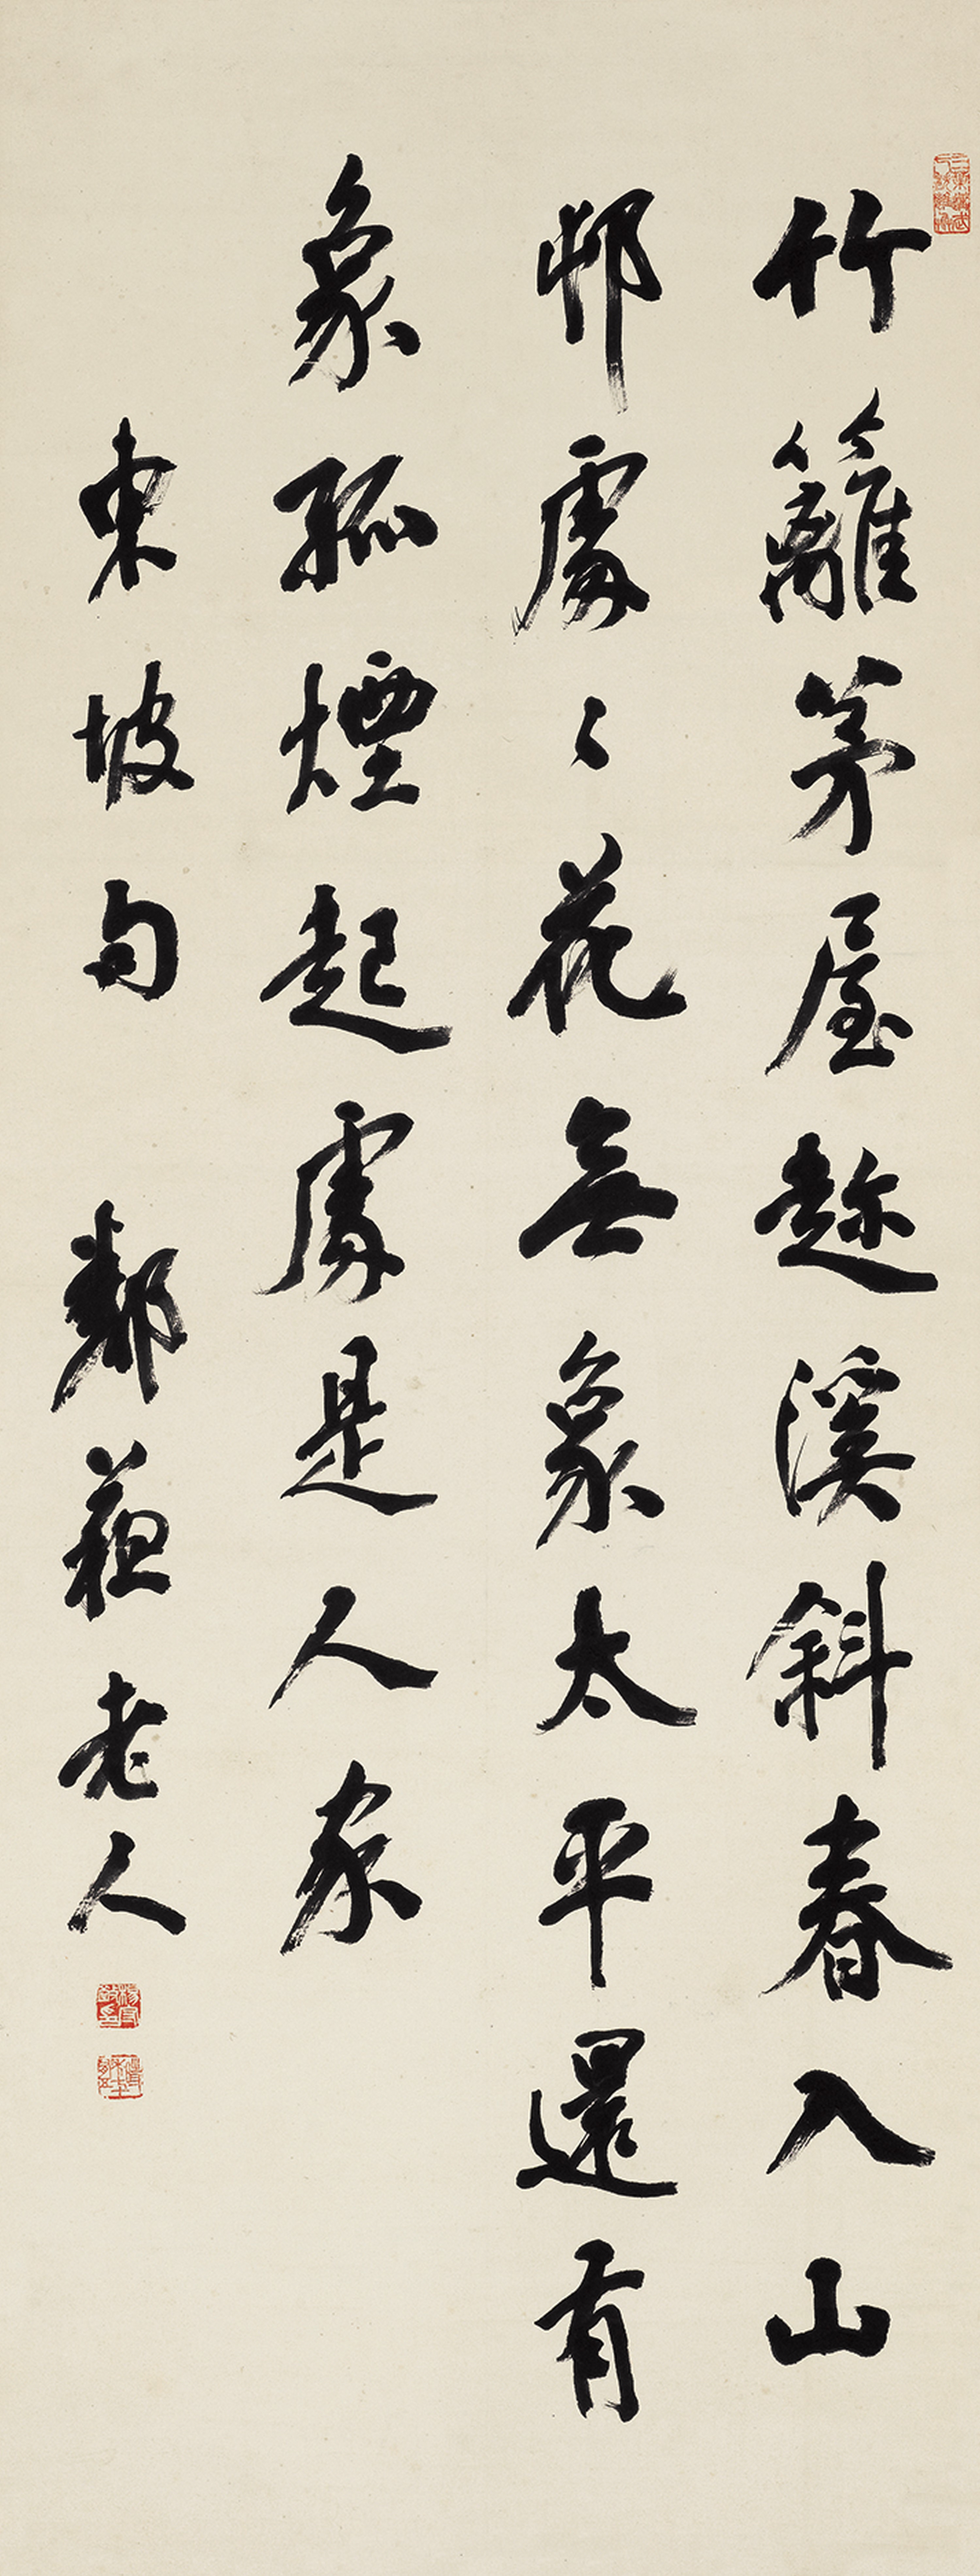 竹籬茅屋趂溪斜春入山
邨處〻花無象太平還有
象孤煙起處是人家
東坡句 鄰蘇老人